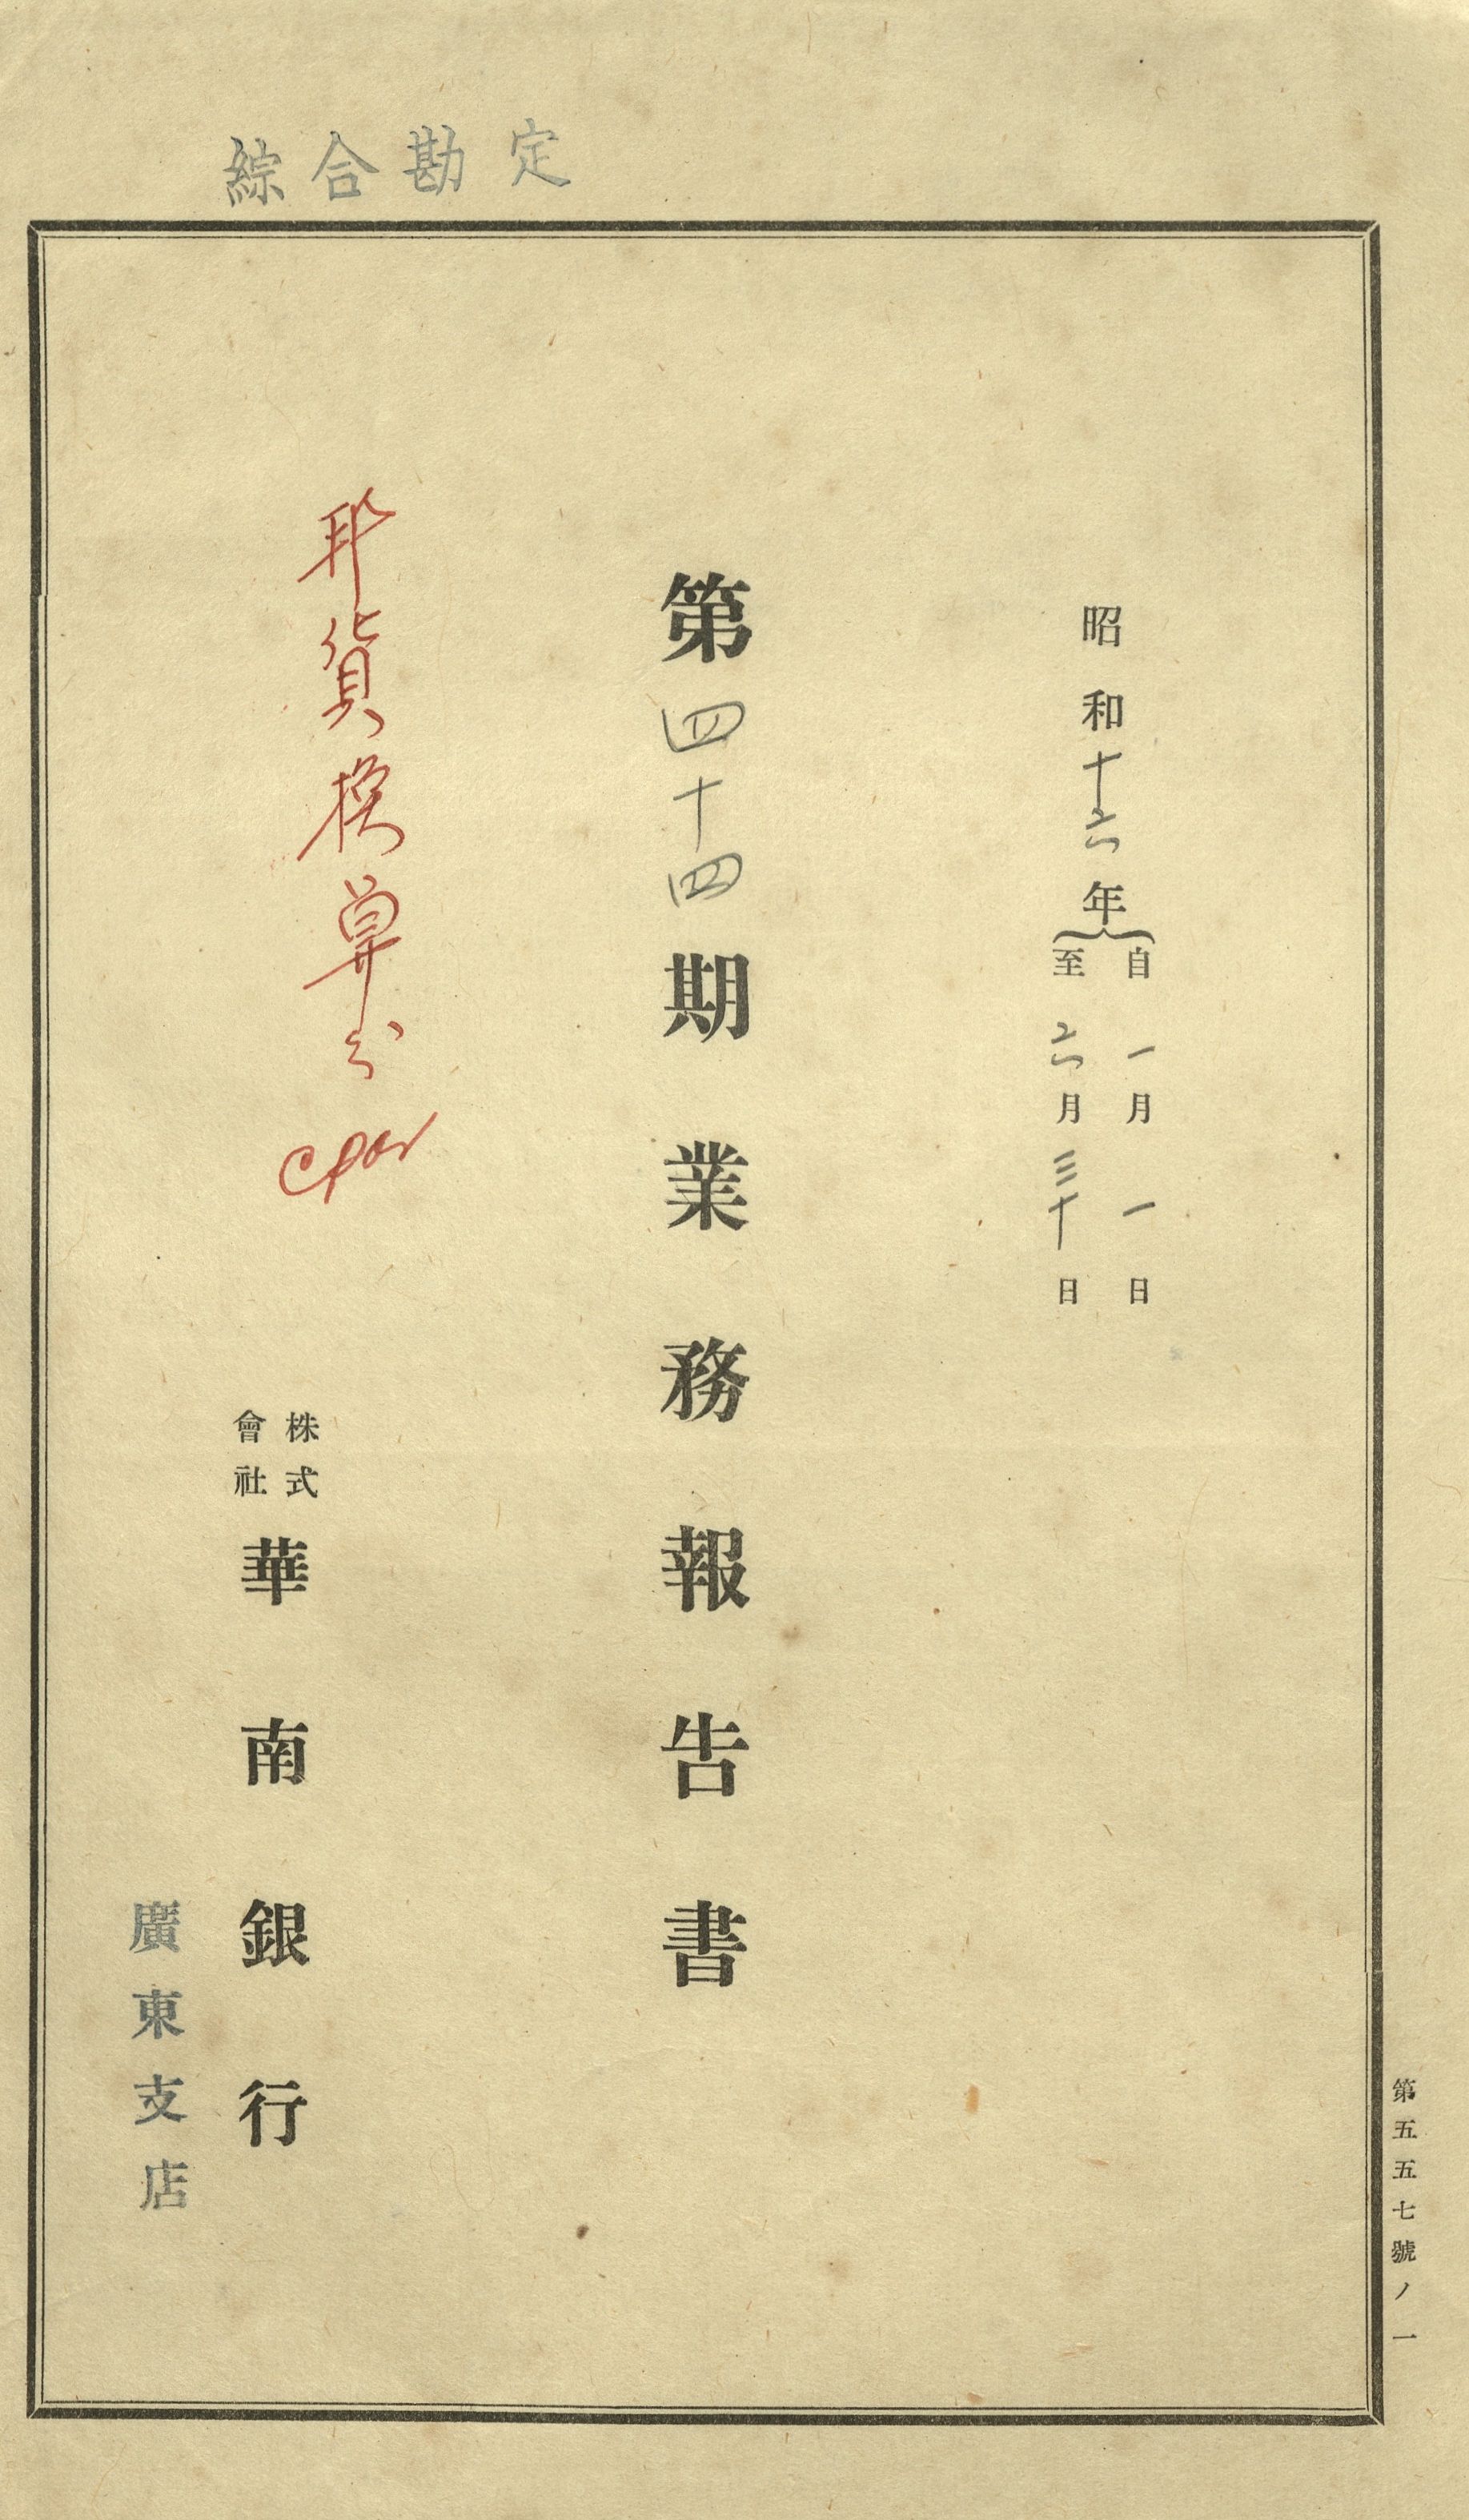 綜合勘定
昭和十六年
自一月一日
至六月三十日
第四十四期業務報告書
邦貨換算分
株式
會社
華南銀行
廣東支店
第五五七號ノ一